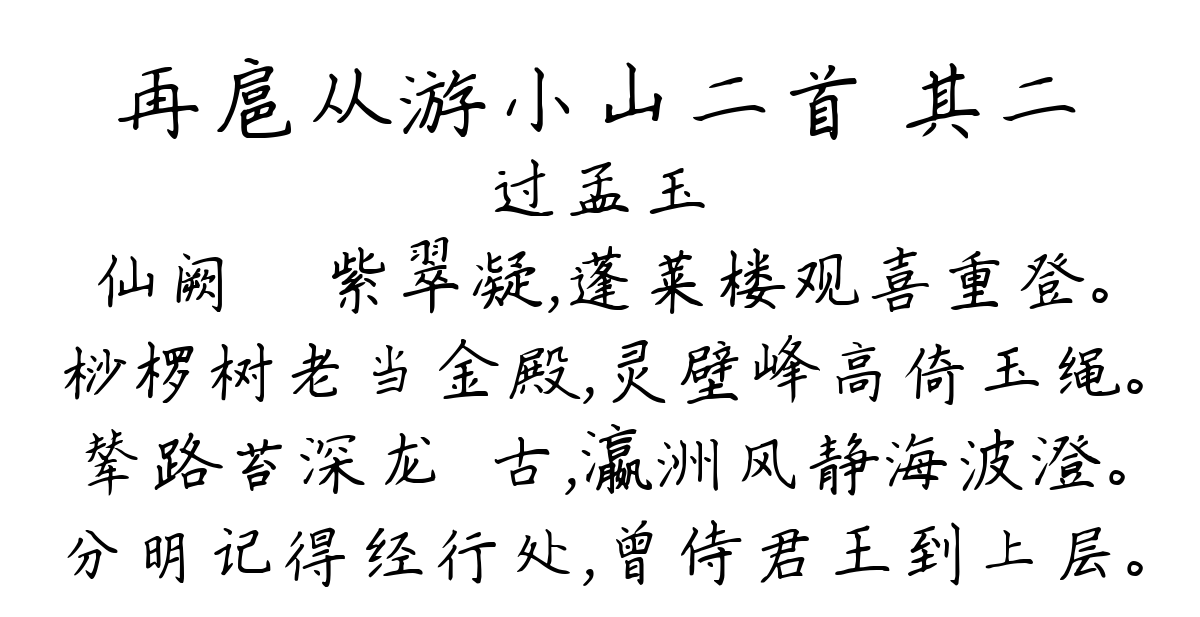 再扈从游小山二首 其二
过孟玉
仙阙 紫翠凝,蓬莱楼观喜重登。
桫椤树老当金殿,灵壁峰高倚玉绳。
辇路苔深龙 古,瀛洲风静海波澄。
分明记得经行处,曾侍君王到上层。